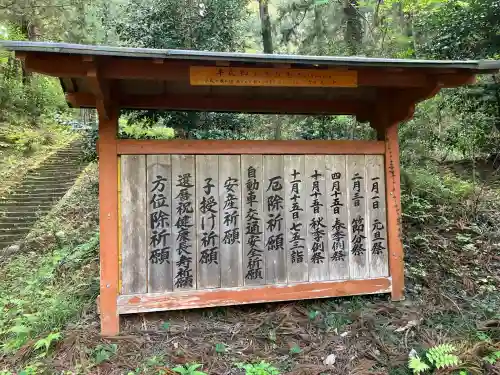 一月一日 元旦祭
二月三日 節分祭
四月十五日 春季例祭
十月十五日 秋季例祭
十一月十五日 七五三詣
厄除祈願
自動車交通安全祈願
安産祈願
子授け祈願
還暦健康長寿祈願
方位除祈願